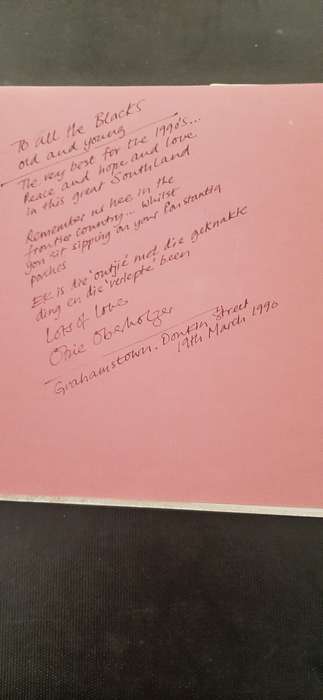 To all the Blacks
old and young
The very best for the 1990's...
Peace and hope and love
in this great Southland
Remember us hee in the
frontier country... whilst
you sit sipping on your Constantia
porches
Ek is die 'outjie' met die geknakte
ding en die 'verlepte' been
Lots of Love
Obie Oberholzer
Grahamstown. Donkin Street
19th March 1990